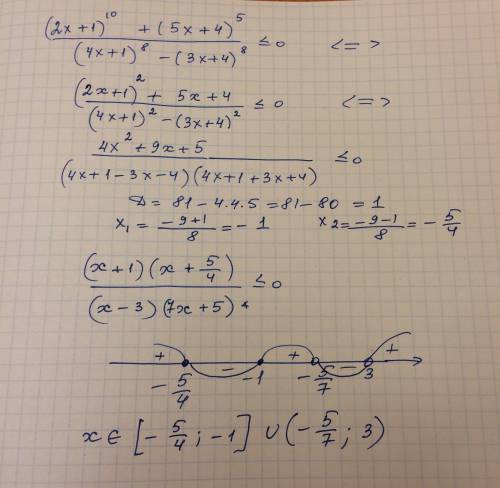 ((2x+1)^10 + (5x+4)^5) / ((4x+1)^8 - (3x+4)^8) ≤ 0 <=>
((2x+1)^2 + 5x+4) / ((4x+1)^2 - (3x+4)^2) ≤ 0 <=>
(4x^2+9x+5) / ((4x+1-3x-4)(4x+1+3x+4)) ≤ 0
D = 81 - 4.4.5 = 81 - 80 = 1
x1 = (-9+1)/8 = -1 x2 = (-9-1)/8 = -5/4
((x+1)(x+5/4)) / ((x-3)(7x+5)) ≤ 0
+ - + - +
-5/4 -1 -5/7 3
x ∈ [-5/4; -1] ∪ (-5/7; 3)